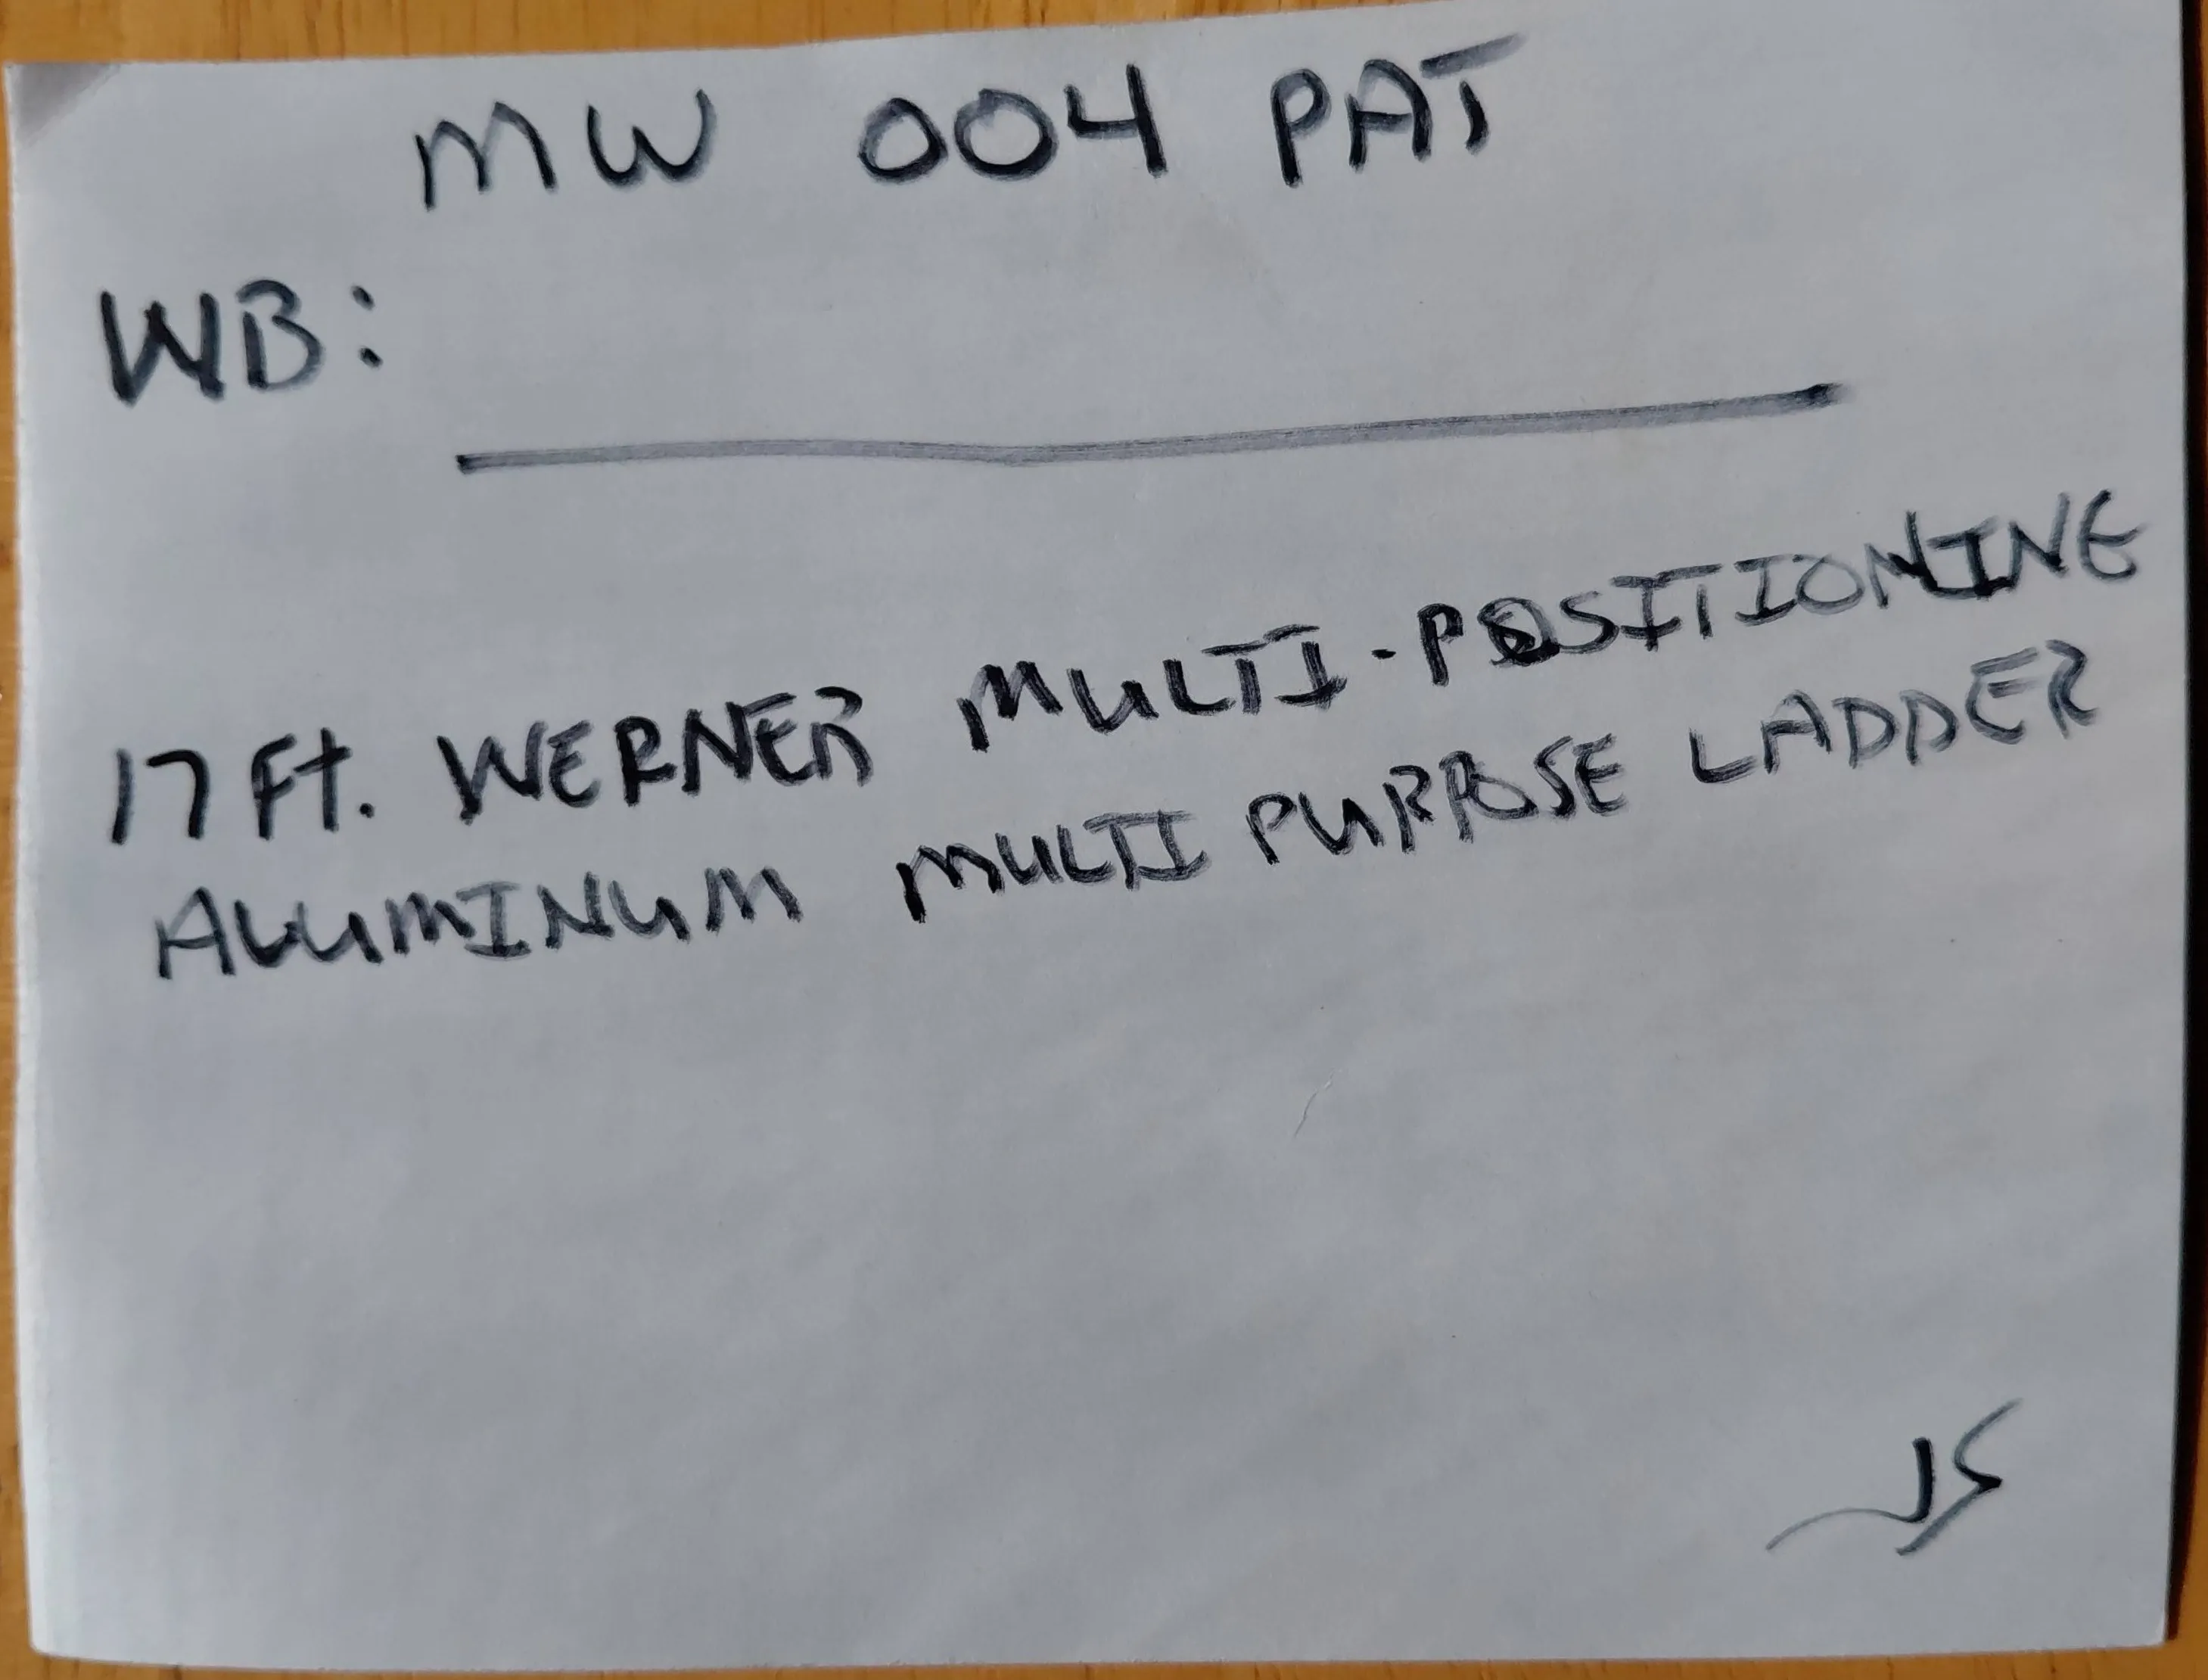 MW 004 PAT
WB:
17 Ft. WERNER MULTI-POSITIONING
ALUMINUM MULTI PURPOSE LADDER
JS